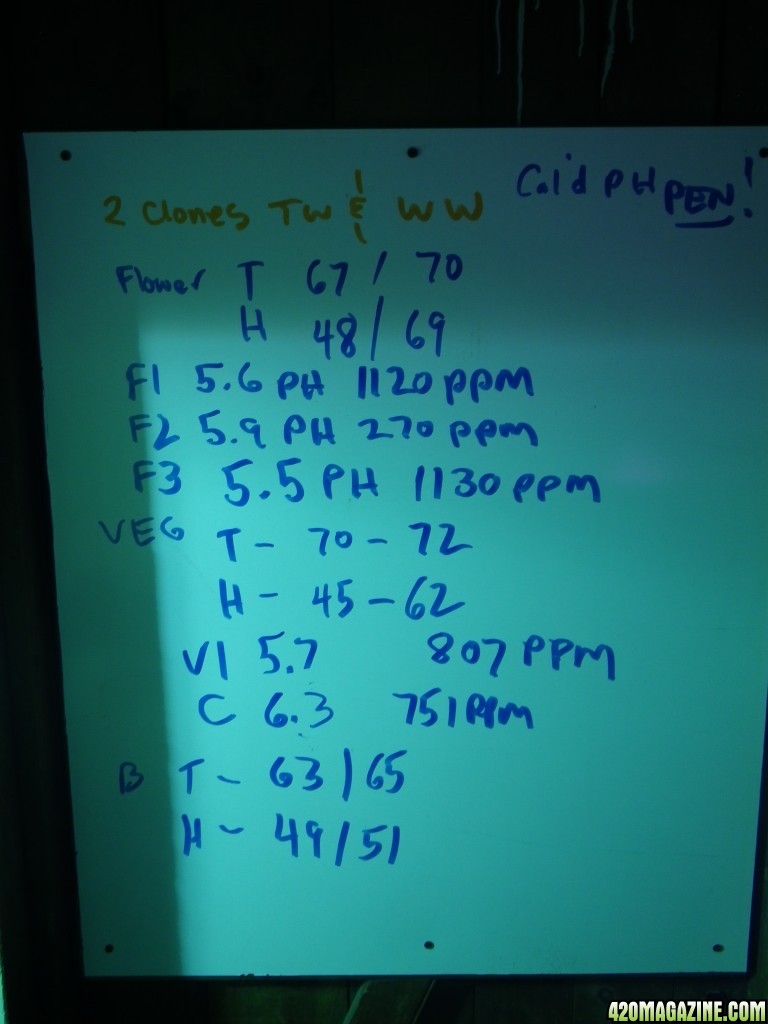 2 Clones TW & WW
Cal'd PH PEN!
Flower T 67/70
H 48/69
F1 5.6 PH 1120 PPM
F2 5.9 PH 270 PPM
F3 5.5 PH 1130 PPM
VEG T- 70-72
H- 45-62
V1 5.7 807 PPM
C 6.3 751 PPM
B T- 63/65
H- 49/51
420MAGAZINE.COM